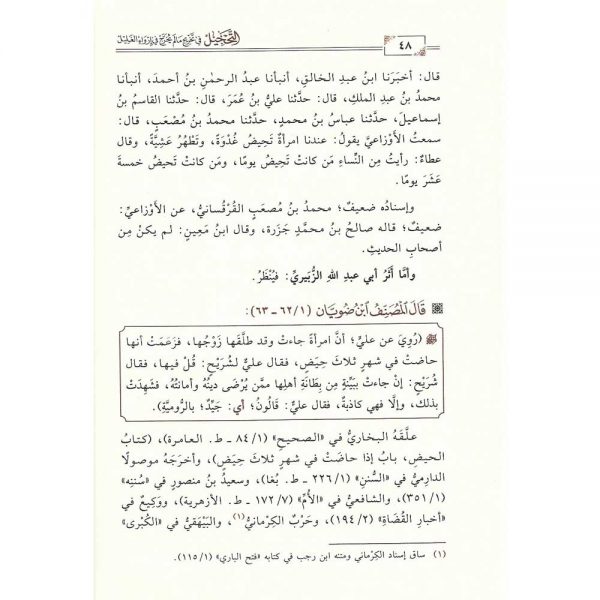 ٤٨
التَّحْجِيلُ في تخريج ما لم يُخرَّج في إرواء الغليل
قال: أخبَرَنا ابنُ عبدِ الخالقِ، أنبأنا عبدُ الرحمٰنِ بنُ أحمدَ، أنبأنا
محمدُ بنُ عبدِ الملكِ، قال: حدَّثنا عليُّ بنُ عُمَرَ، قال: حدَّثنا القاسمُ بنُ
إسماعيلَ، حدَّثنا عباسُ بنُ محمدٍ، حدَّثنا محمدُ بنُ مُصْعَبٍ، قال:
سمعتُ الأوزاعيَّ يقولُ: عندنا امرأةٌ تَحِيضُ غُدْوَةً، وتَطْهُرُ عَشِيَّةً، وقال
عطاءٌ: رأيتُ مِن النِّساءِ مَن كانتْ تَحِيضُ يومًا، ومَن كانتْ تَحيضُ خمسةَ
عَشَرَ يومًا.
وإسنادُه ضعيفٌ؛ محمدُ بنُ مُصعَبٍ القُرْقُسانيُّ، عن الأَوْزاعيِّ:
ضعيفٌ؛ قاله صالحُ بنُ محمَّدٍ جَزَرة، وقال ابنُ مَعِينٍ: لم يكنْ مِن
أصحابِ الحديثِ.
وأمَّا أَثَرُ أبي عبدِ اللهِ الزُّبَيريِّ: فيُنْظَرُ.
قَالَ المُصَنِّفُ ابْنُ ضُوَيَّان (١/ ٦٢ - ٦٣):
(رُوِيَ عن عليٍّ؛ أنَّ امرأةً جاءتْ وقد طلَّقَها زَوْجُها، فزَعَمَتْ أنها
حاضتْ في شهرٍ ثلاثَ حِيَضٍ، فقال عليٌّ لشُرَيْحٍ: قُلْ فيها، فقال
شُرَيْحٌ: إنْ جاءتْ بِبَيِّنةٍ مِن بِطَانَةِ أهلِها ممَّن يُرْضَى دينُهُ وأمانتُهُ، فشَهِدَتْ
بذلك، وإلَّا فهي كاذبةٌ، فقال عليٌّ: قَالُونُ؛ أي: جَيِّدٌ؛ بالرُّوميَّةِ).
علَّقَهُ البخاريُّ في «الصحيحِ» (١/ ٨٤ - ط. العامرة)، (كتابُ
الحيضِ، بابُ إذا حاضَتْ في شهرٍ ثلاثَ حِيَضٍ)، وأخرَجَهُ موصولًا
الدارِميُّ في «السُّننِ» (١/ ٢٢٦ - ط. بُغا)، وسعيدُ بنُ منصورٍ في «سُننِهِ»
(١/ ٣٥١)، والشافعيُّ في «الأُمِّ» (٧/ ١٧٢ - ط. الأزهرية)، ووَكِيعٌ في
«أخبارِ القُضَاةِ» (٢/ ١٩٤)، وحَرْبٌ الكِرْمانيُّ(١)، والبَيْهَقيُّ في «الكُبْرى»
(١) ساق إسناد الكِرْماني ومتنه ابن رجب في كتابه «فتح الباري» (١/ ١١٥).